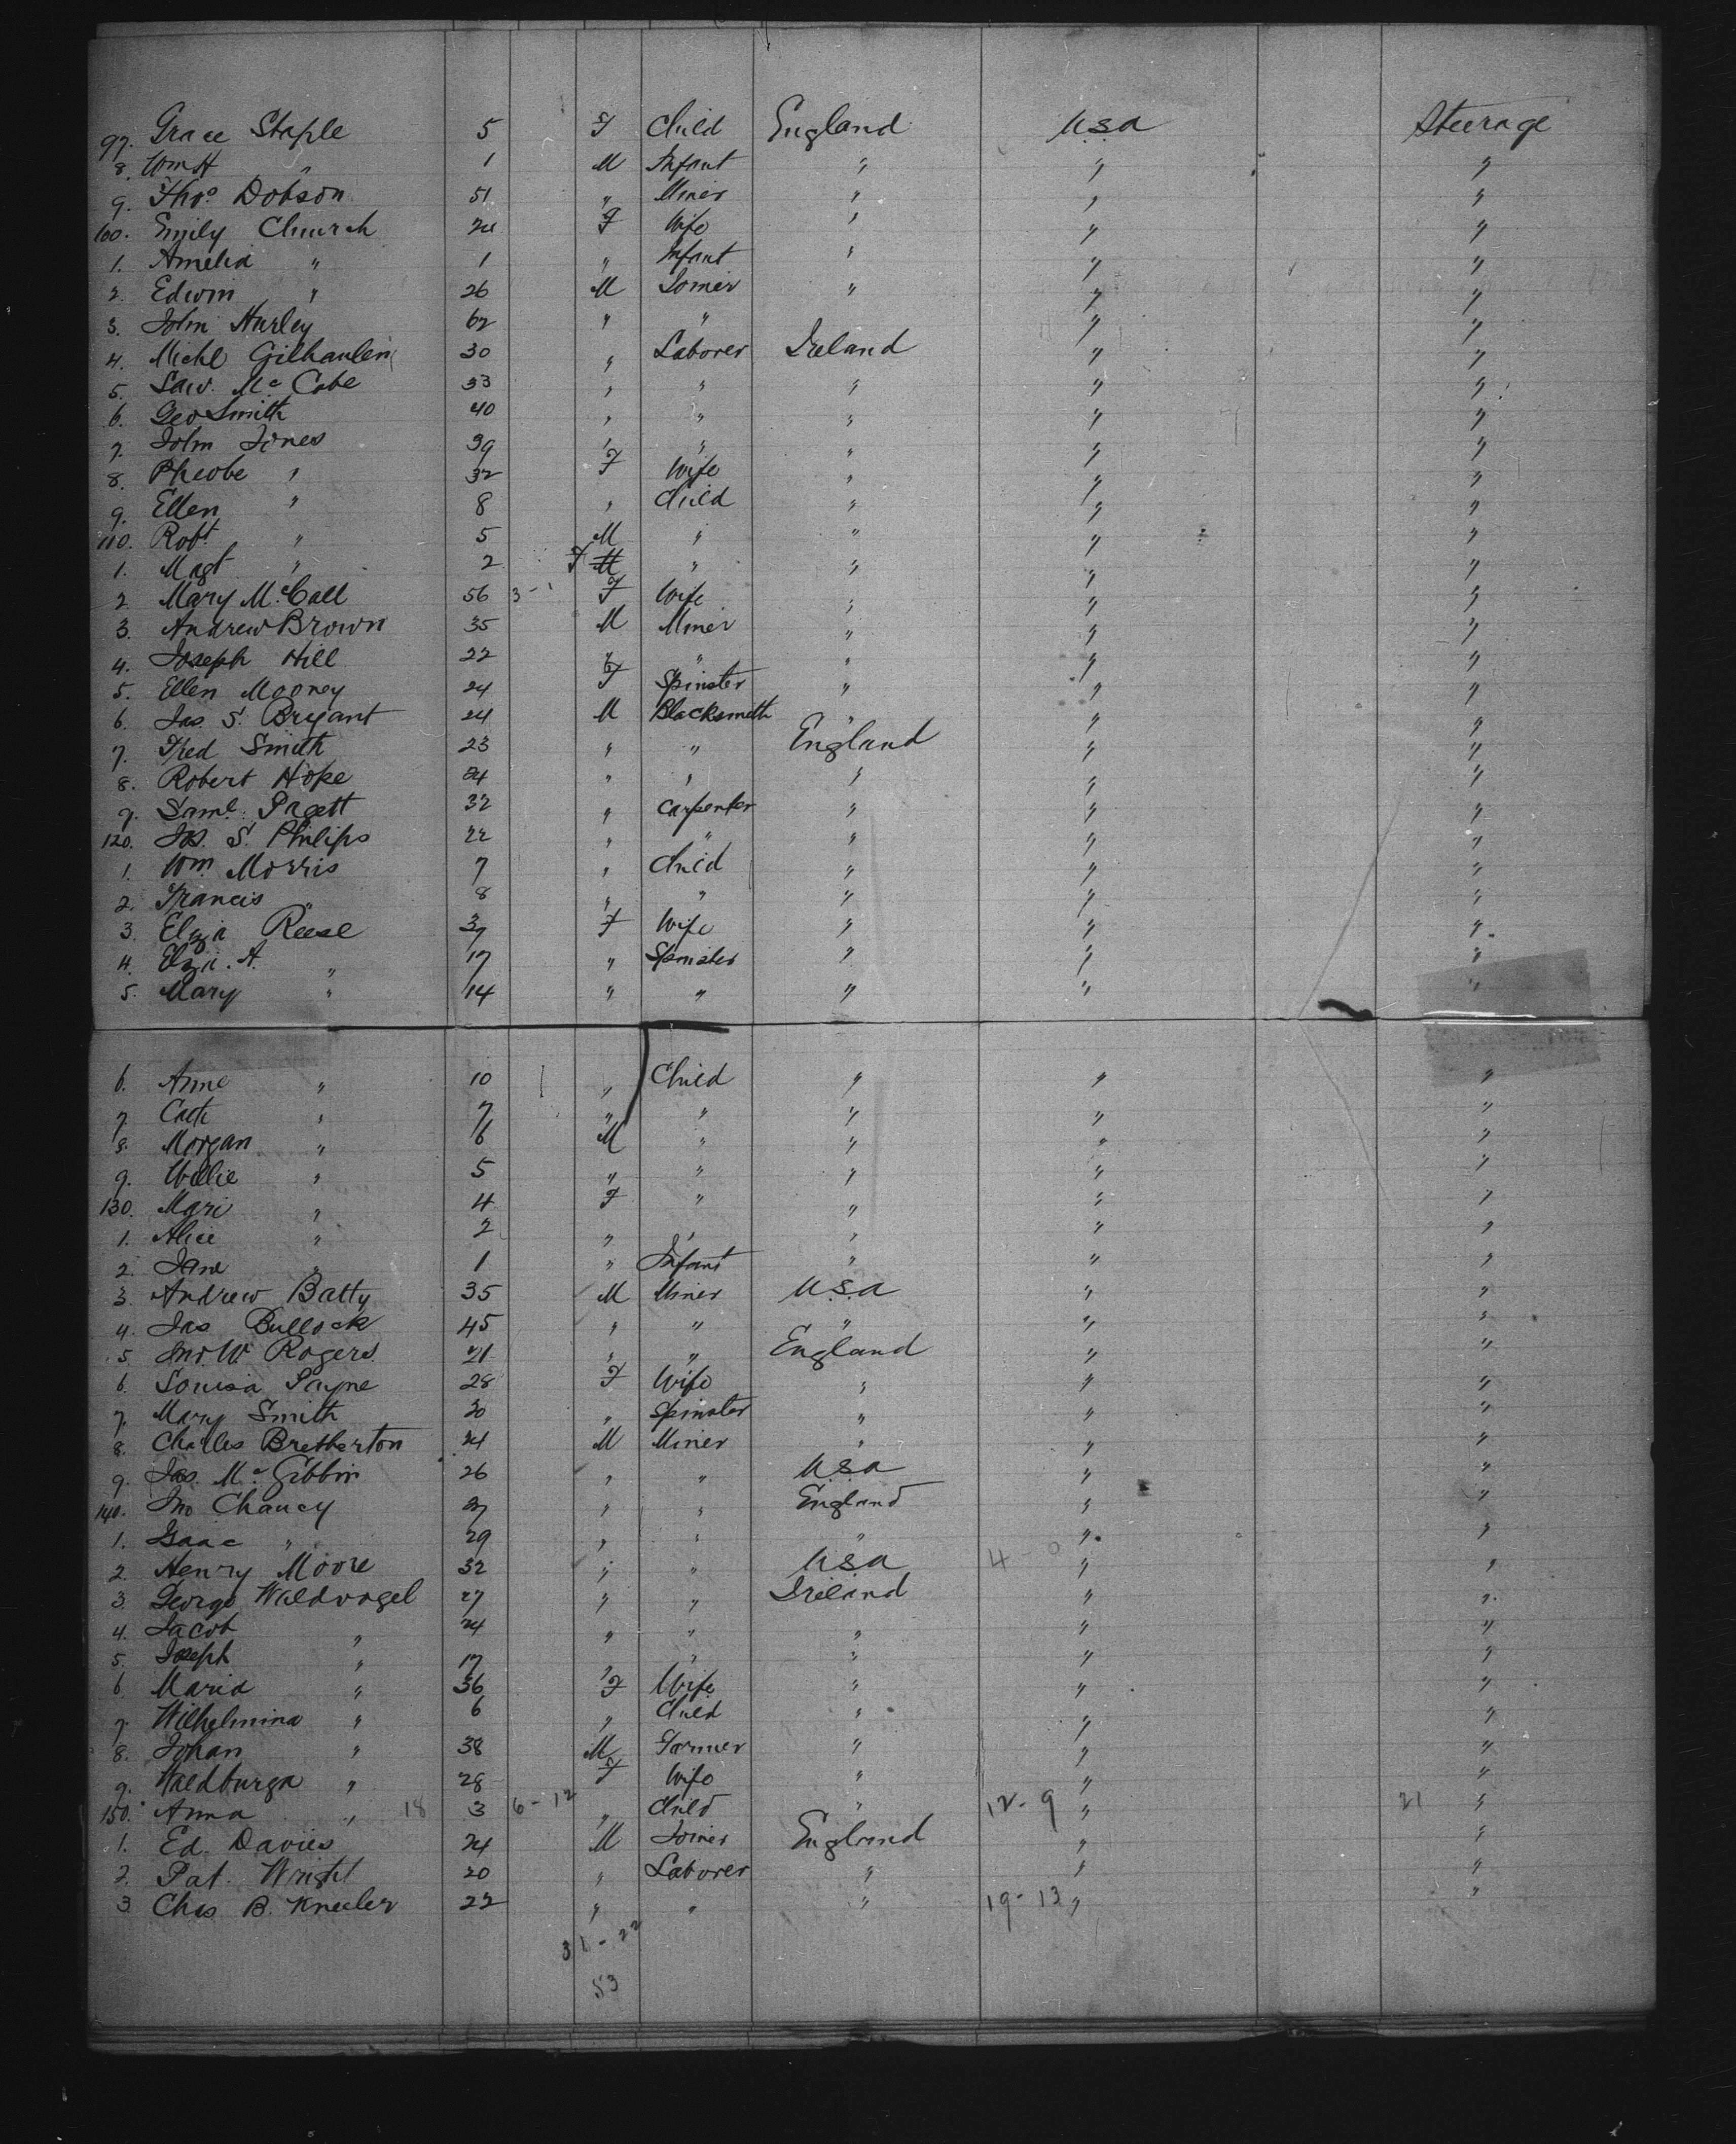 97. Grace Staple 5 F Child England U.S.A Steerage
8. Wm H " 1 M Infant " " "
9. Thos. Dobson 51 " Miner " " "
100. Emily Church 24 F Wife " " "
1. Amelia " 1 " Infant " " "
2. Edwin " 26 M Joiner " " "
3. John Hurley 62 " " " "
4. Michl Gilhaulen 30 " Laborer Ireland " "
5. Law. McCabe 33 " " " " "
6. Geo Smith 40 " " " " "
7. John Jones 39 " " " " "
8. Pheobe " 32 F Wife " " "
9. Ellen " 8 " Child " " "
110. Robt " 5 M " " " "
1. Magt " 2 F M " " " "
2. Mary McCall 56 3-1 F Wife " " "
3. Andrew Brown 35 M Miner " " "
4. Joseph Hill 22 " " " " "
5. Ellen Mooney 24 F Spinster " " "
6. Jas. S. Bryant 24 M Blacksmith " " "
7. Fred Smith 23 " " England " "
8. Robert Hope 24 " " " " "
9. Saml. Pagett 32 " Carpenter " " "
120. Jos. S. Philips 22 " " " " "
1. Wm. Morris 7 " Child " " "
2. Francis " 8 " " " " "
3. Eliza Reese 37 F Wife " " "
4. Eliza. A. " 17 " Spinster " " "
5. Mary " 14 " " " " "
6. Anne " 10 " Child " " "
7. Cath " 7 " " " " "
8. Morgan " 6 M " " " "
9. Willie " 5 " " " " "
130. Mari " 4 F " " " "
1. Alice " 2 " " " " "
2. Jane " 1 " Infant " " "
3. Andrew Batty 35 M Miner U.S.A " "
4. Jas Bullock 45 " " " " "
5. Jno W Rogers 21 " " England " "
6. Louisa Payne 28 F Wife " " "
7. Mary Smith 20 " Spinster " " "
8. Charles Bretherton 24 M Miner " " "
9. Jas. McGibbin 26 " " U.S.A " "
140. Jno Chancy 27 " " England " "
1. Isaac " 29 " " " " "
2. Henry Moore 32 " " U.S.A 4 0 " "
3. George Waldvogel 27 " " Ireland " "
4. Jacob " 24 " " " " "
5. Joseph " 17 " " " " "
6. Maria " 36 F Wife " " "
7. Wilhelmina " 6 " Child " " "
8. Johan " 38 M Farmer " " "
9. Waldburga " 28 F Wife " " "
150. Anna " 18 3 6-12 " Child " 12-9 " 21 "
1. Ed. Davies 24 M Joiner England " "
2. Pat. Wright 20 " Laborer " " "
3. Chas B. Kneeler 22 " " " 19-13 " "
31-22
53